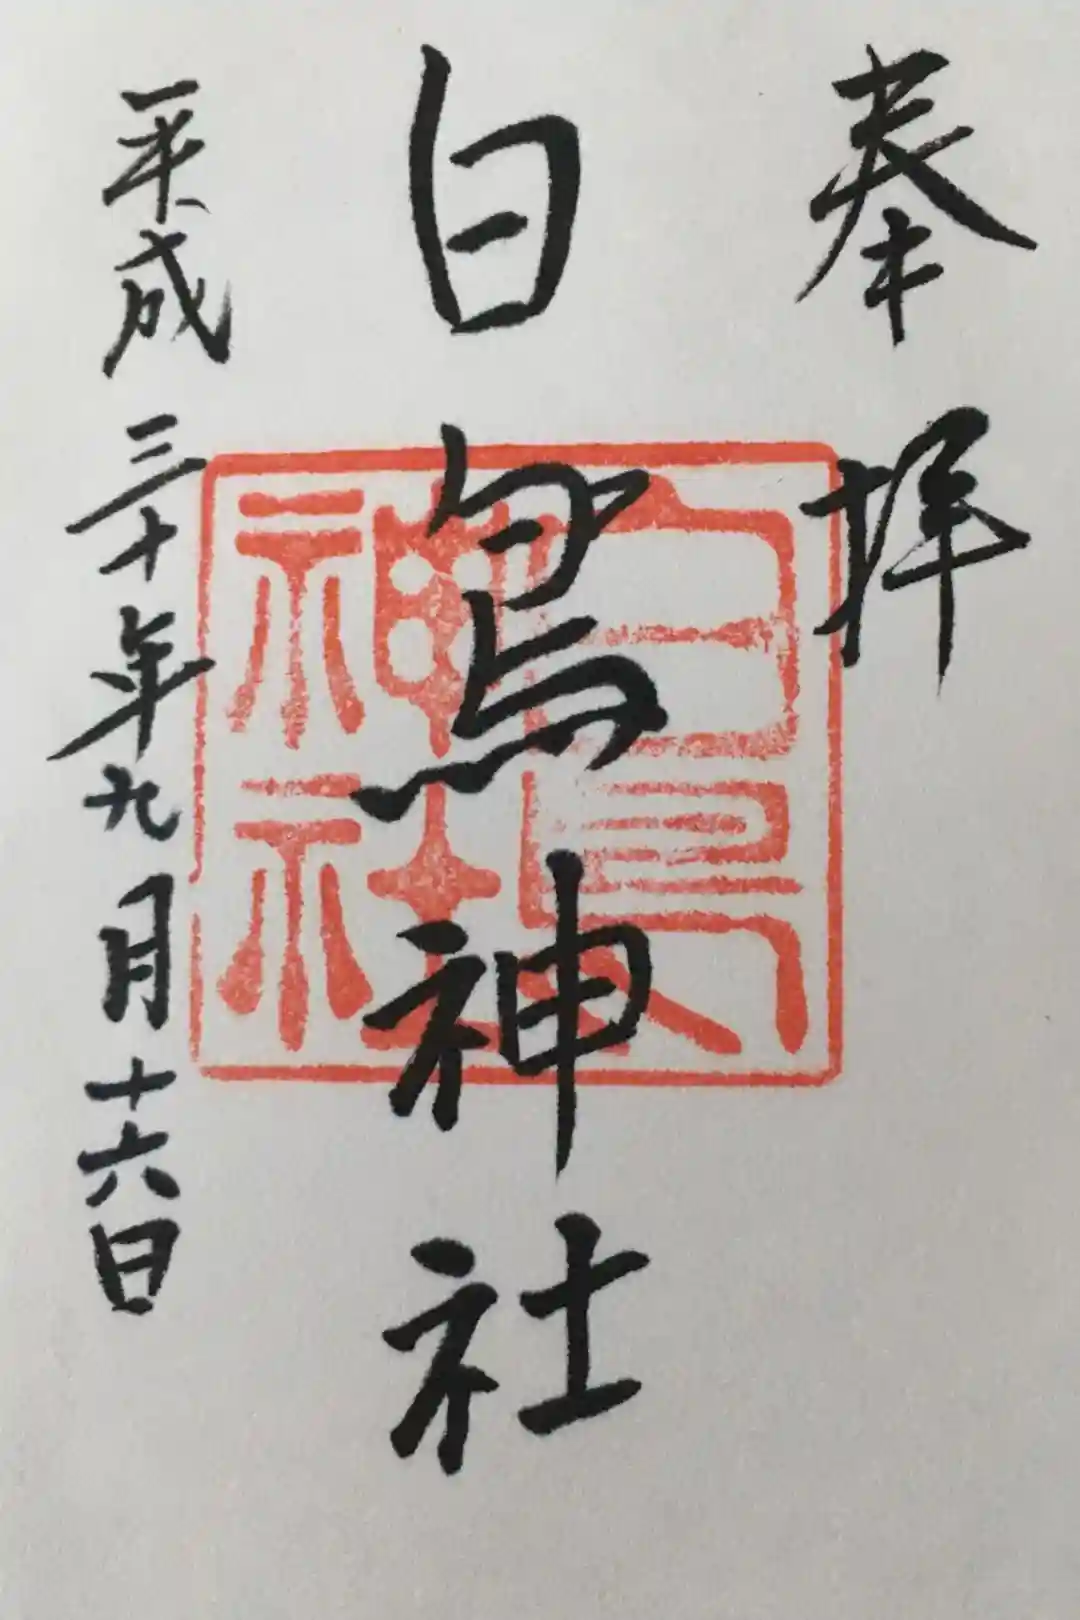 奉拝
白鳥神社
白鳥神社
平成三十年九月十六日